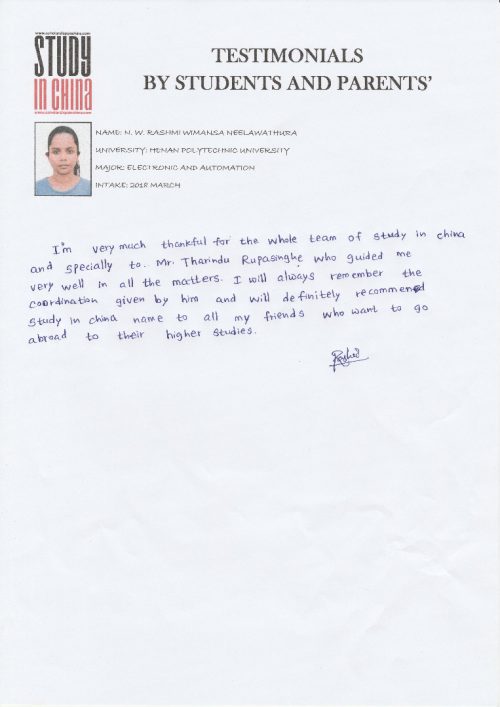 STUDY
IN CHINA
TESTIMONIALS
BY STUDENTS AND PARENTS'
NAME: N. W. RASHMI WIMANSA NEELAWATHURA
UNIVERSITY: HENAN POLYTECHNIC UNIVERSITY
MAJOR: ELECTRONIC AND AUTOMATION
INTAKE: 2018 MARCH
I'm very much thankful for the whole team of study in china
and specially to.. Mr. Tharindu Rupasinghe who guided me
very well in all the matters. I will always remember the
coordination given by him and will definitely recommend
Study in china name to all my friends who want to go
abroad to their higher studies.